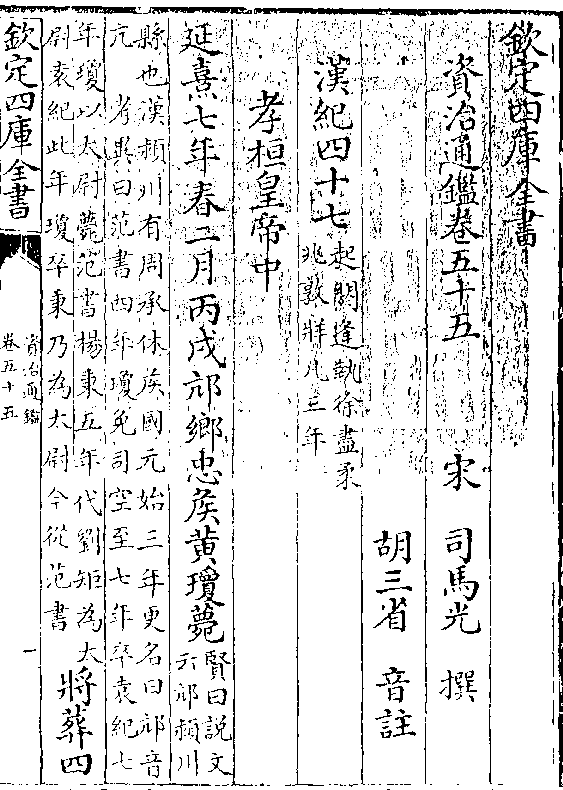 欽定四庫全書
資治通鑑卷五十五
宋 司馬光 撰
胡三省 音註
漢紀四十七
起閼逢執徐盡柔
兆敦牂凡三年
孝桓皇帝中
延熹七年春二月丙戌邟鄉忠矦黄瓊薨
賢曰説文
云邟潁川
縣也漢潁川有周承休矦國元始三年更名曰邟音
亢 考異曰范書四年瓊免司空至七年卒袁紀七
年瓊以大尉薨范書楊秉五年代劉矩為大
尉袁紀此年瓊卒秉乃為大尉今從范書
將葬四
欽定四庫全書
資治通鑑
卷五十五
一